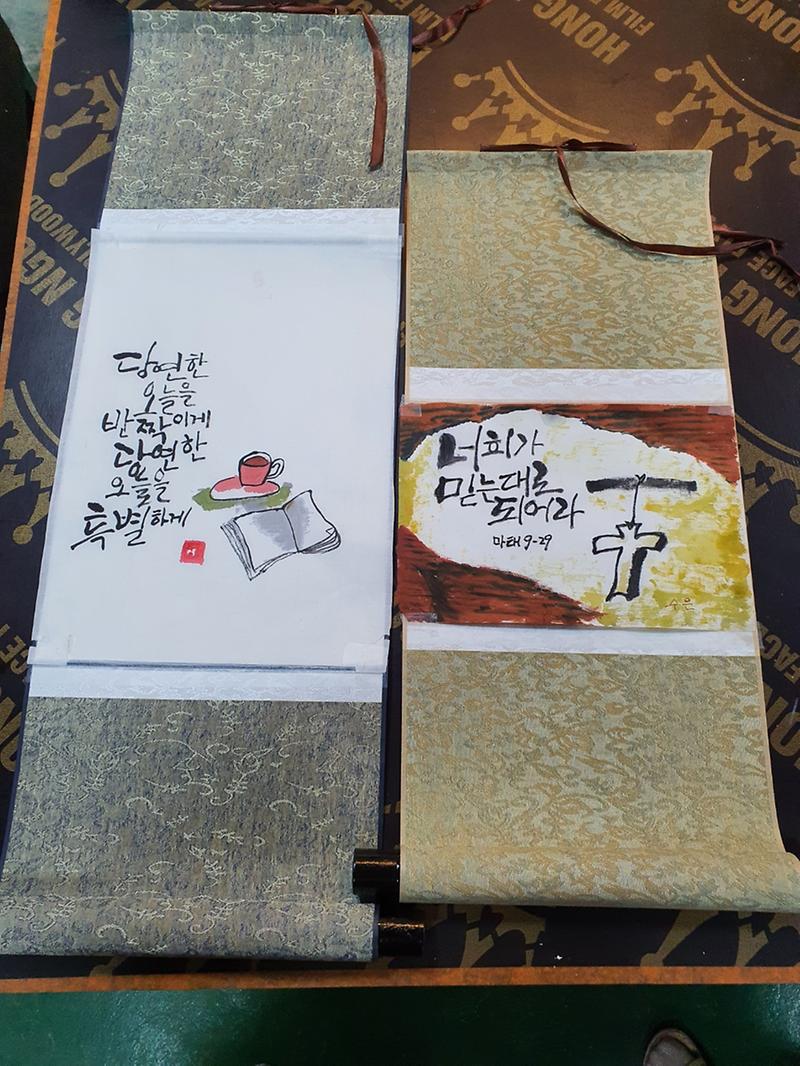 당연한
오늘을
반짝이게
당연한
오늘을
특별하게
너희가
믿는대로
되어라
마태 9-29
수은
HONG
FILM
HONG NG
LLYWOOD
HONG
FACE